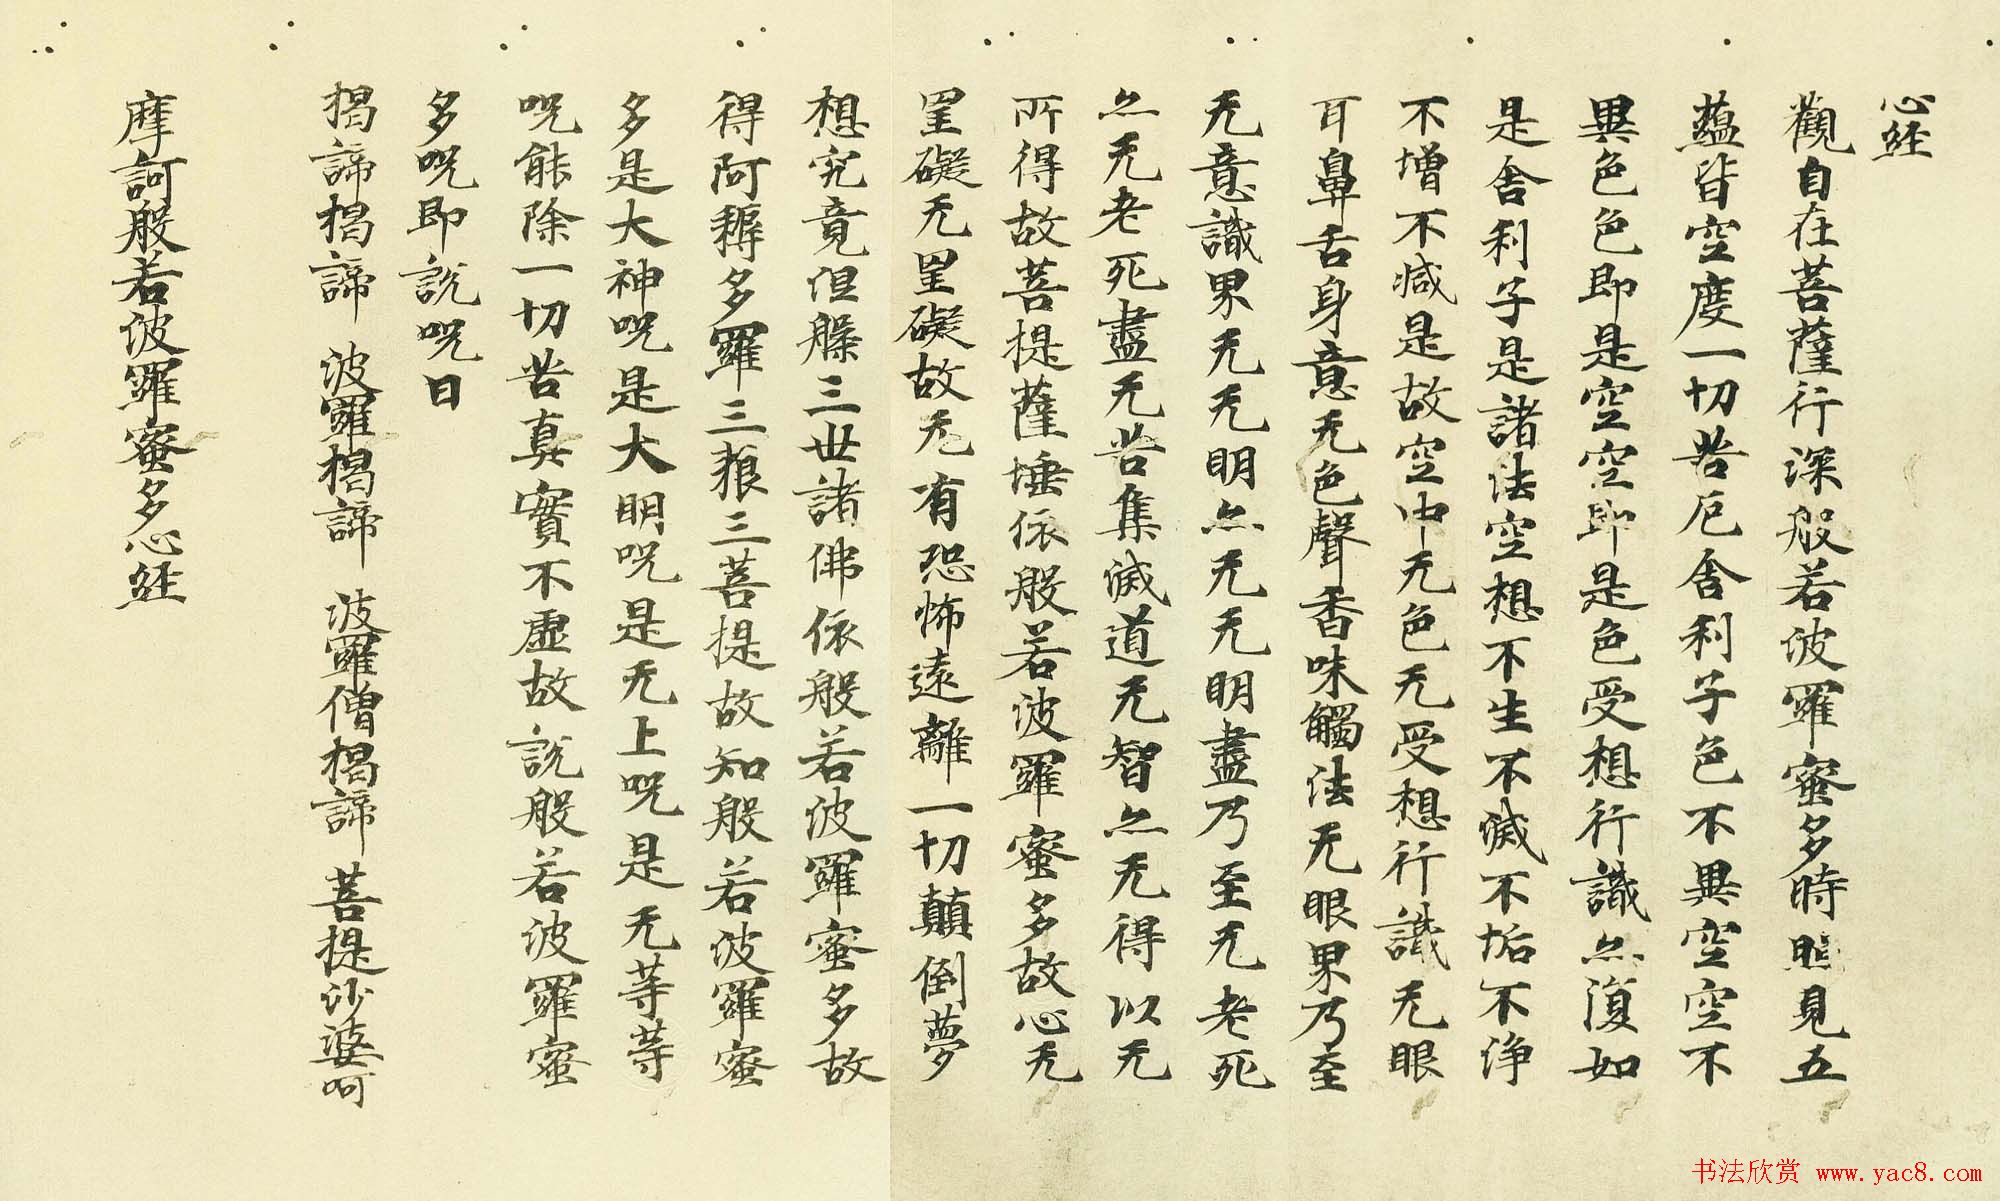 心経
觀自在菩薩行深般若波羅蜜多時照見五
蘊皆空度一切苦厄舍利子色不異空空不
異色色即是空空即是色受想行識亦復如
是舍利子是諸法空想不生不滅不垢不淨
不增不減是故空中无色无受想行識无眼
耳鼻舌身意无色聲香味觸法无眼界乃至
无意識界无无明亦无无明盡乃至无老死
亦无老死盡无苦集滅道无智亦无得以无
所得故菩提薩埵依般若波羅蜜多故心无
罣礙无罣礙故无有恐怖遠離一切顛倒夢
想究竟但槃三世諸佛依般若波羅蜜多故
得阿耨多羅三藐三菩提故知般若波羅蜜
多是大神呪是大明呪是无上呪是无等等
呪能除一切苦真實不虛故說般若波羅蜜
多呪即說呪曰
揭諦揭諦 波羅揭諦 波羅僧揭諦 菩提沙婆呵
摩訶般若波羅蜜多心経
书法欣赏 www.yac8.com